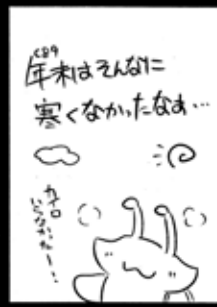 C89
年末はそんなに
寒くなかったなぁ…
カイロ
いらなかったー!!